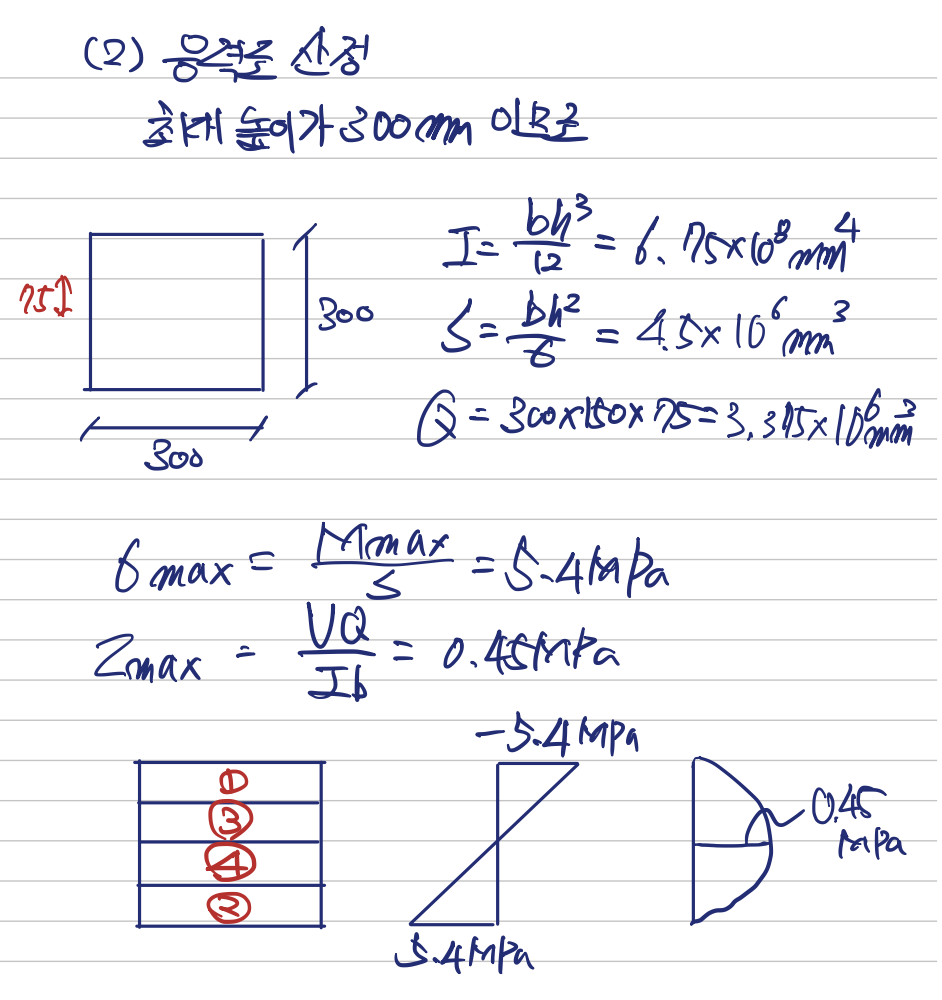 (2) 응력도 산정
전체 높이가 300mm 이므로
75↕
300
300
I = bh³/12 = 6.75×10⁸mm⁴
S = bh²/6 = 4.5×10⁶mm³
Q = 300×150×75 = 3.375×10⁶mm³
σmax = Mmax/S = 5.4MPa
τmax = VQ/Ib = 0.45MPa
-5.4MPa
①
③
④
②
0.45
MPa
5.4MPa